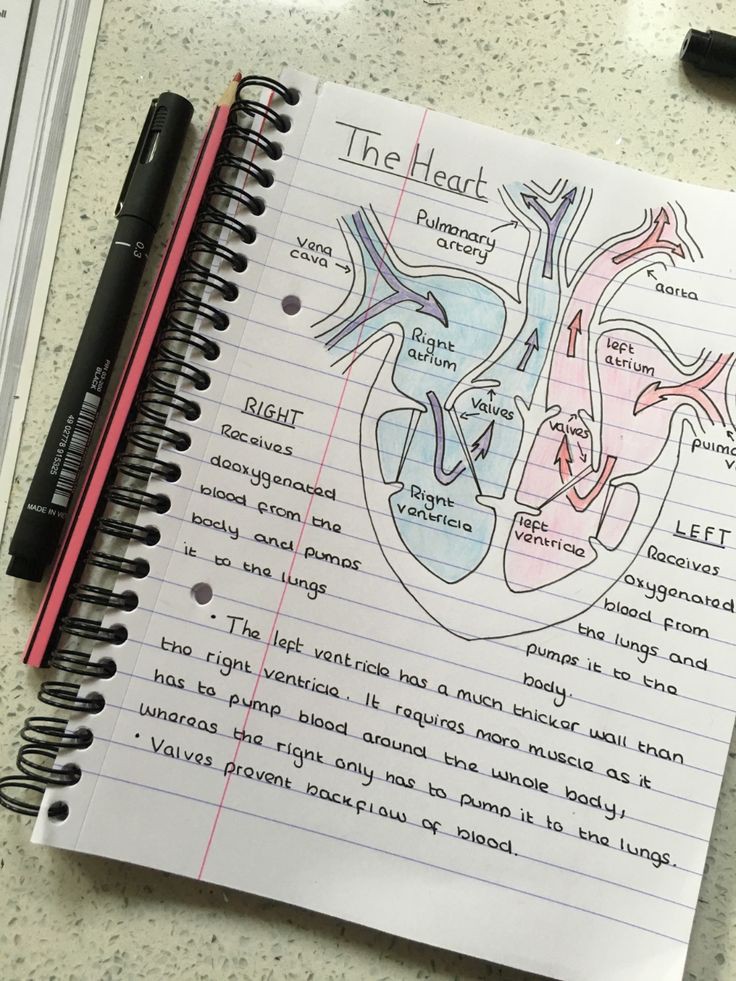 The Heart
Pulmonary
artery
Vena
cava
aorta
Right
atrium
left
atrium
Valves
Valves
Right
ventricle
left
ventricle
RIGHT
Receives
deoxygenated
blood from the
body and pumps
it to the lungs
LEFT
Receives
oxygenated
blood from
the lungs and
pumps it to the
body.
• The left ventricle has a much thicker wall than
the right ventricle. It requires more muscle as it
has to pump blood around the whole body,
whereas the right only has to pump it to the lungs.
• Valves prevent backflow of blood.
0.3
BLACK
49 02778 915325